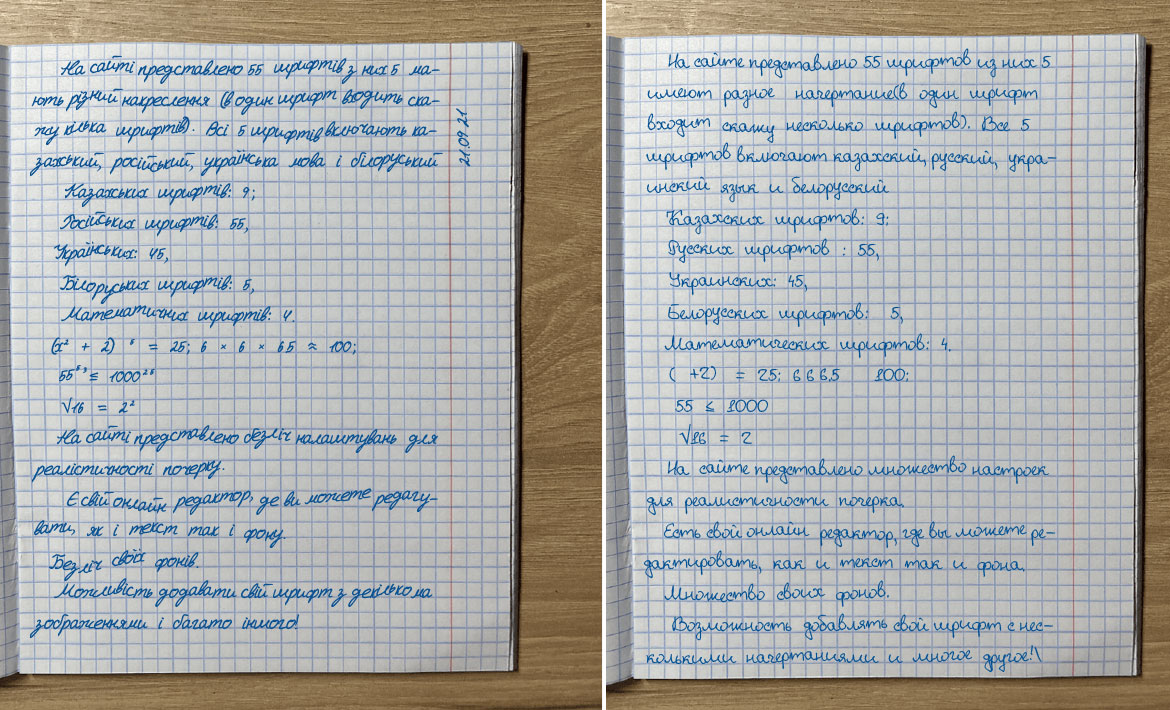 На сайті представлено 55 шрифтів з них 5 ма-
ють різний накреслення (в один шрифт входить ска-
жу кілька шрифтів). Всі 5 шрифтів включають ка-
захський, російський, українська мова і білоруський
Казахських шрифтів: 9;
Російських шрифтів: 55,
Українських: 45,
Білоруських шрифтів: 5,
Математичних шрифтів: 4.
(x² + 2) ⁵ = 25; 6 × 6 × 65 ≈ 100;
55⁵ ⁹ ≤ 1000²⁵
√16 = 2²
На сайті представлено безліч налаштувань для
реалістичності почерку.
Є свій онлайн редактор, де ви можете редагу-
вати, як і текст так і фону.
Безліч своїх фонів.
Можливість додавати свій шрифт з декількома
зображеннями і багато іншого!
21.09.21
На сайте представлено 55 шрифтов из них 5
имеют разное начертание(в один шрифт
входит скажу несколько шрифтов). Все 5
шрифтов включают казахский, русский, укра-
инский язык и белорусский
Казахских шрифтов: 9;
Русских шрифтов : 55,
Украинских: 45,
Белорусских шрифтов: 5,
Математических шрифтов: 4.
( +2) = 25; 6 6 6.5 100;
55 ≤ 1000
√16 = 2
На сайте представлено множество настроек
для реалистичности почерка.
Есть свой онлайн редактор, где вы можете ре-
дактировать, как и текст так и фона.
Множество своих фонов.
Возможность добавлять свой шрифт с нес-
колькими начертаниями и многое другое!\